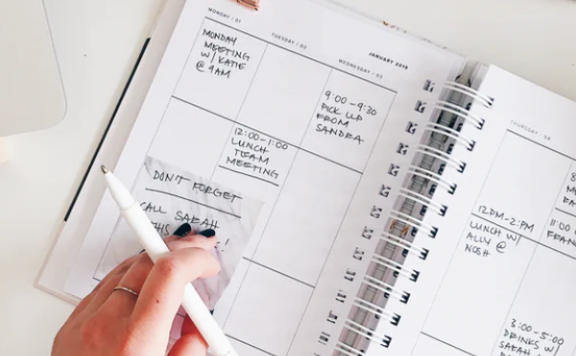 MONDAY / 01
MONDAY
MEETING
W/ KATIE
@ 9AM
TUESDAY / 02
12:00-1:00
LUNCH
TEAM
MEETING
WEDNESDAY / 03
JANUARY 2018
9:00-9:30
PICK UP
FROM
SANDRA
DON'T FORGET
CALL SARAH
THIS
!
THURSDAY / 04
12PM-2PM
LUNCH W/
ALLY @
NOSH
11:00
3:00-5:00
DRINKS W/
SARAH